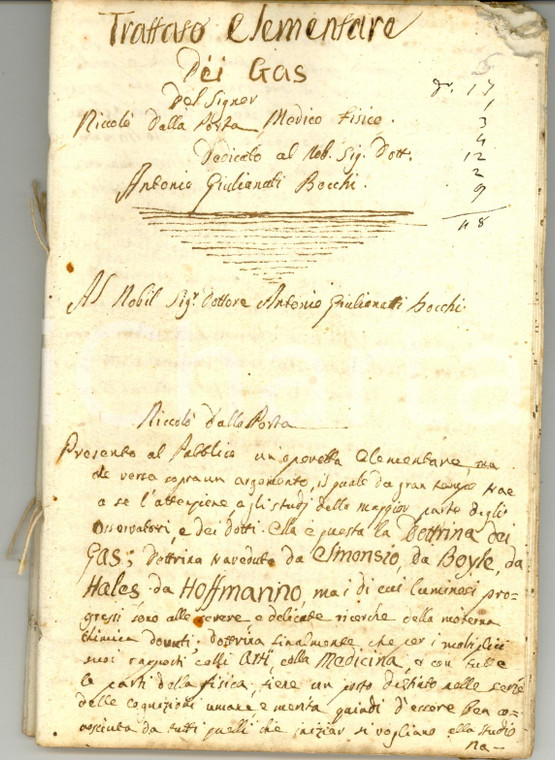 Trattato Elementare
Dei Gas
Del Signor
Niccolò Dalla Porta Medico Fisico.
Dedicato al Nob. Sig. Dott.
Antonio Giulianati Bocchi.
17
1
3
4
12
2
9
48
Al Nobil Sig.r Dottore Antonio Giulianati Bocchi
Niccolò Dalla Porta
Presento al Pubblico un operetta Elementare, ma
che versa sopra un argomento, il quale da gran tempo trae
a se l'attenzione, agli studj della maggior parte degli
Osservatori, e dei dotti. Ella è questa la Dottrina dei
Gas; Dottrina traveduta da Elmonsio, da Boyle, da
Hales da Hoffmanno, ma i di cui luminosi pro-
gressi sono alle severe, e delicate ricerche della moderna
Chimica dovuti; dottrina finalmente che per i moltiplici
suoi rapporti colli Arti, colla Medicina, e con tutte
le parti della fisica, tiene un posto distinto nelle serie
delle cognizioni umane e merita quindi d'essere ben co-
nosciuta da tutti quelli che iniziar si vogliano allo studio
na-